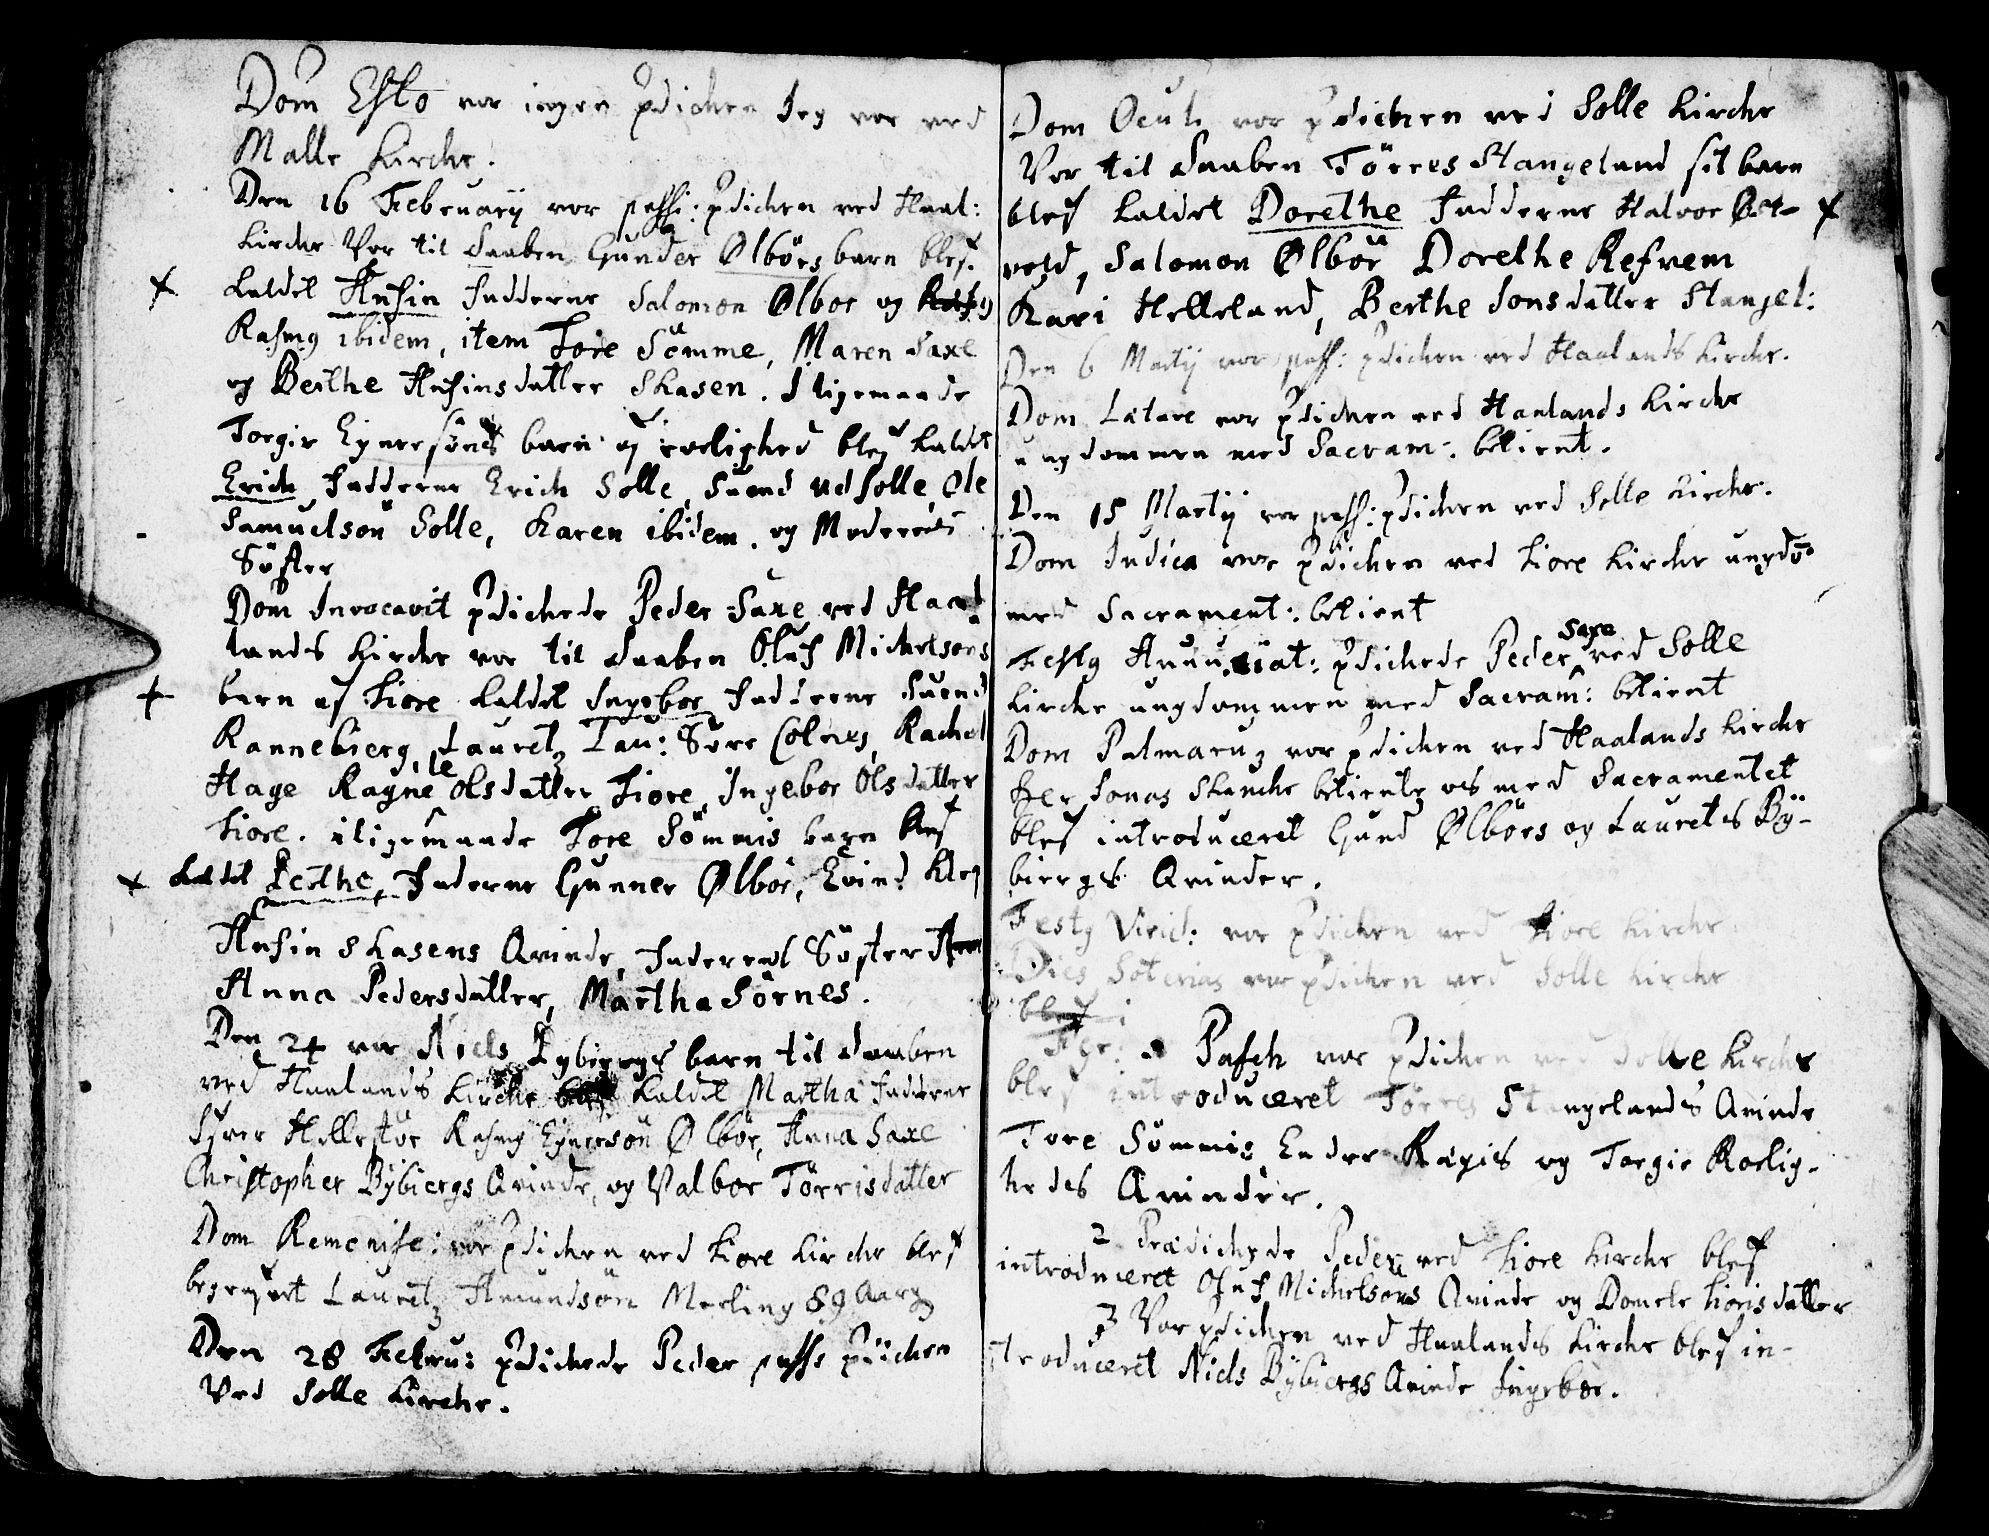 Dom Esto vor ingen pdicken Jeg vor ved
Malle Kircke.
Den 16 Februarij vor passi: pdicken ved Haal:
Kircke Vor til Daaben Gunder Ølbörs barn blef
kaldet Ausin Fadderne Salomon Ølbor og
Rasmg ibidem, item Tore Sömme, Maren Saxe
og Berthe Ausinsdatter Skasen. I ligemaade
Torgir Eynersöns barn af roelighed blef kaldet
Erich, Fadderne Erich Solle, Suend udsolle, Ole
Samuelson Solle, Karen ibidem. og Moderens
Söster
Dom Invocavit pdickede Peder Saxe ved Haa-
lands Kircke vor til Daaben Oluf Michelsons
barn af Tiore kaldet Ingebor Fadderne Suend
Rannebierg, Lauretz Tau: Tore Colnes, Rachel
Hage Ragnele Olsdatter Tiore, Ingebor Olsdatter
Tiore. iligemaade Tore Sömmis barn blef
kaldet Berthe, Fadderne Gunner Ølbör, Evind Klep
Ausin Skasens Qvinde, Faderens Söster
Anna Pedersdatter, Martha Sörnes.
Den 24 vor Niels Bybiergs barn til Daaben
ved Haalands Kircke kaldet Martha Fadderne
Siver Hellestöe Rasmg Eynersön Ølbor, Anna Saxe
Christopher Bÿbiergs Qvinde, og Valbor Törrisdatter
Dom Remenise: vor pdicken ved Tiore Kircke blef
begrafvet Lauretz Amundsön Meeling 89 Aarg
Den 28 Februa: pdickede Peder passi pdicken
Ved Solle Kircke.
Dom Oculi vor pdicken ved Solle Kircke
Vor til Daaben Törres Stangeland sit barn
blef kaldet Dorethe Fadderne Halvor Øst-
vold, Salomon Ølbör Dorethe Refnem
Kari Helleland, Berthe Jonsdatter Stangel:
Den 6 Martij vor pass: pdicken ved Haalands Kircke.
Dom Lætare vor pdicken ved Haalands Kircke
ungdommen med Sacram: betient.
Den 15 Martij vor pass: pdicken ved Solle Kircke.
Dom Judica vor pdicken ved Tiore Kircke ungdö-
med Sacrament: betient
Festg Anunciat: pdickede Peder Saxe ved Solle
Kircke ungdommen med Sacram: betient
Dom Palmaruz vor pdicken ved Haalands Kircke
Her Jonas Skancke betiente os med Sacramentet
blef introduceret Gund Ølbörs og Lauretes Bÿ-
biergs Qvinder.
Festg Virid: vor pdicken ved Tiore Kircke
Dies Soterias vor pdicken ved Solle Kircke
blef i
Fer: Pasch vor pdicken ved Solle Kircke
blef introduceret Törres Stangelands Qvinde
Tore Sömmis Ender Rægis og Torgir Roelig-
hedes Qvinder.
2 Prædickede Peder ved Tiore Kircke blef
introduceret Oluf Michelsons Qvinde og Domele Tiorisdatter
3 Vor pdicken ved Haalands Kircke blef in-
troduceret Niels Bÿbiergs Qvinde Ingebor.